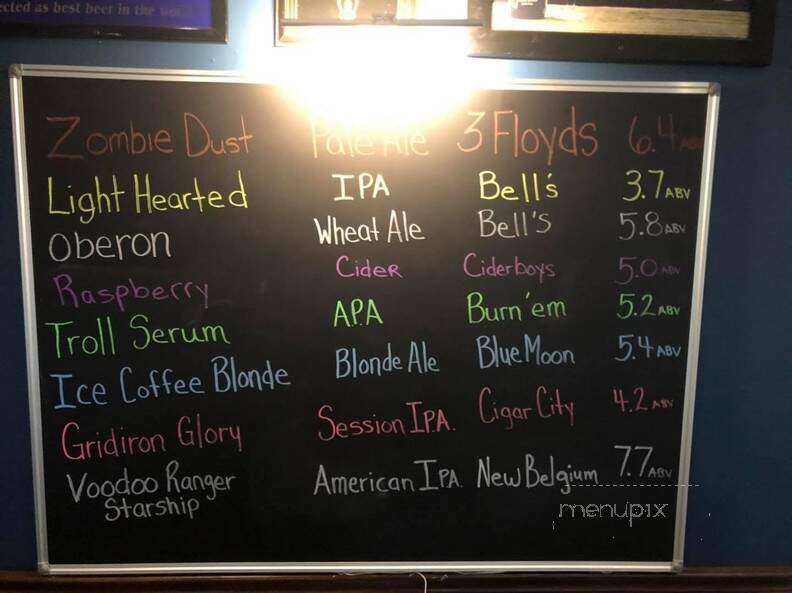 ected as best beer in the world
Zombie Dust Pale Ale 3 Floyds 6.4 ABV
Light Hearted IPA Bell's 3.7 ABV
Oberon Wheat Ale Bell's 5.8 ABV
Raspberry Cider Ciderboys 5.0 ABV
Troll Serum APA Burn'em 5.2 ABV
Ice Coffee Blonde Blonde Ale Blue Moon 5.4 ABV
Gridiron Glory Session IPA. Cigar City 4.2 ABV
Voodoo Ranger American IPA New Belgium 7.7 ABV
Starship
menupix